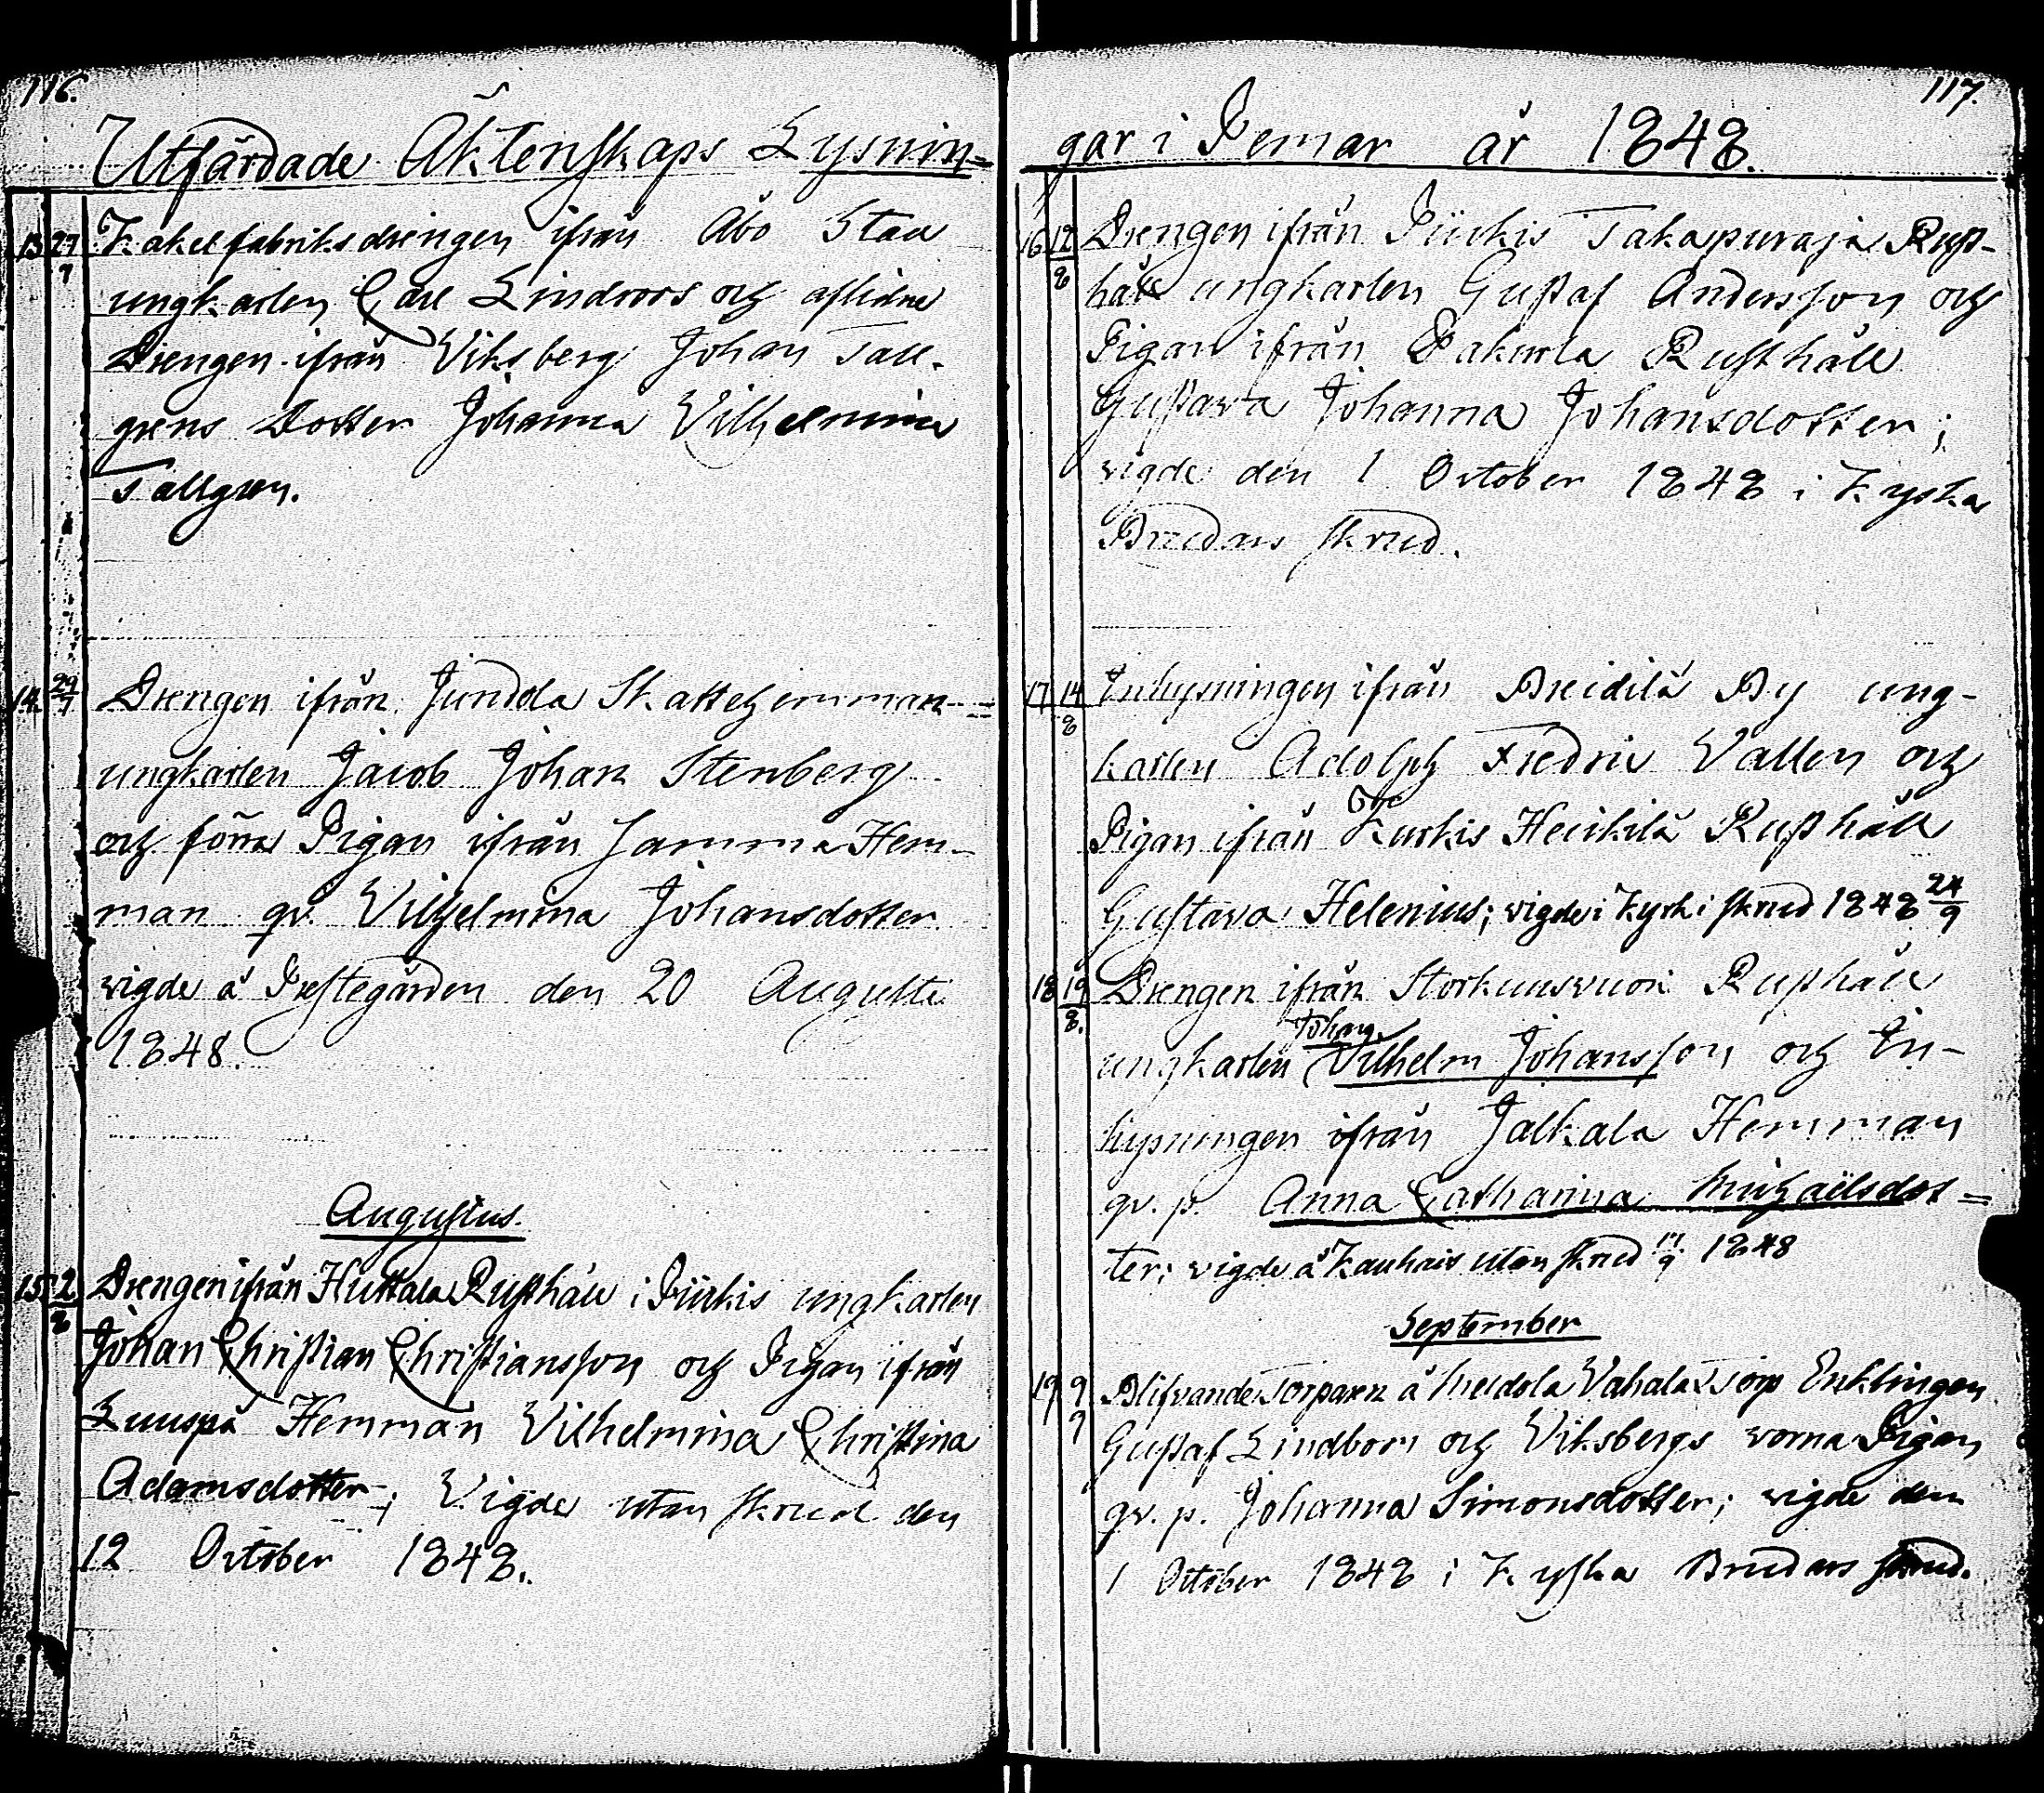 116.
Utfärdade Äktenskaps Lysnin=
13 27/7 Kakelfabriksdrengen ifrån Åbo Stad
ungkarlen Carl Lindroos och aflidne
Drengen ifrån Viksberg Johan Tall-
grens Dotter Johanna Vilhelmina
Tallgren.
14. 29/7 Drengen ifrån Jundola Skattehemman
ungkarlen Jacob Johan Stenberg
och förra Pigan ifrån Jamma Hem-
man qv. Vilhelmina Johansdotter
vigde å Prestegården den 20 Augusti
1848.
Augustus.
15 2/8 Drengen ifrån Huttala Rusthåll i Piikis ungkarlen
Johan Christian Christiansson och Pigan ifrån
Luuspä Hemman Vilhelmina Christina
Adamsdotter; Vigde utan skrud den
12 October 1848.
117.
gar i Pemar år 1848.
16 12/8 Drengen ifrån Piikis Takapuraja Rust-
håll ungkarlen Gustaf Andersson och
Pigan ifrån Rusthåll
Gustava Johanna Johansdotter;
vigde den 1 October 1848 i Kyska
Brudars skrud.
17 14/8 Inhysningen ifrån Breidilä By ung-
karlen Adolph Fredric Vallen och
Pigan ifrån Kurkis Heikilä Rusthåll
Gustava Helenius; vigde i Kyrki skrud 1848 24/9
18 19/8. Drengen ifrån Storkuusvuori Rusthåll
Johan
ungkarlen Vilhelm Johansson och In-
hysningen ifrån Jalkala Hemman
qv. p. Anna Catharina Michaëlsdot=
ter; vigde å Kauhais utan skrud 17/9 1848
September
19 9/9 Blifvande Torparen å Meldola Vahala Torp Enklingen
Gustaf Lindbom och Viksbergs vorna Pigan
qv. p. Johanna Simonsdotter; vigde den
1 October 1848 i Kyska Brudars skrud.